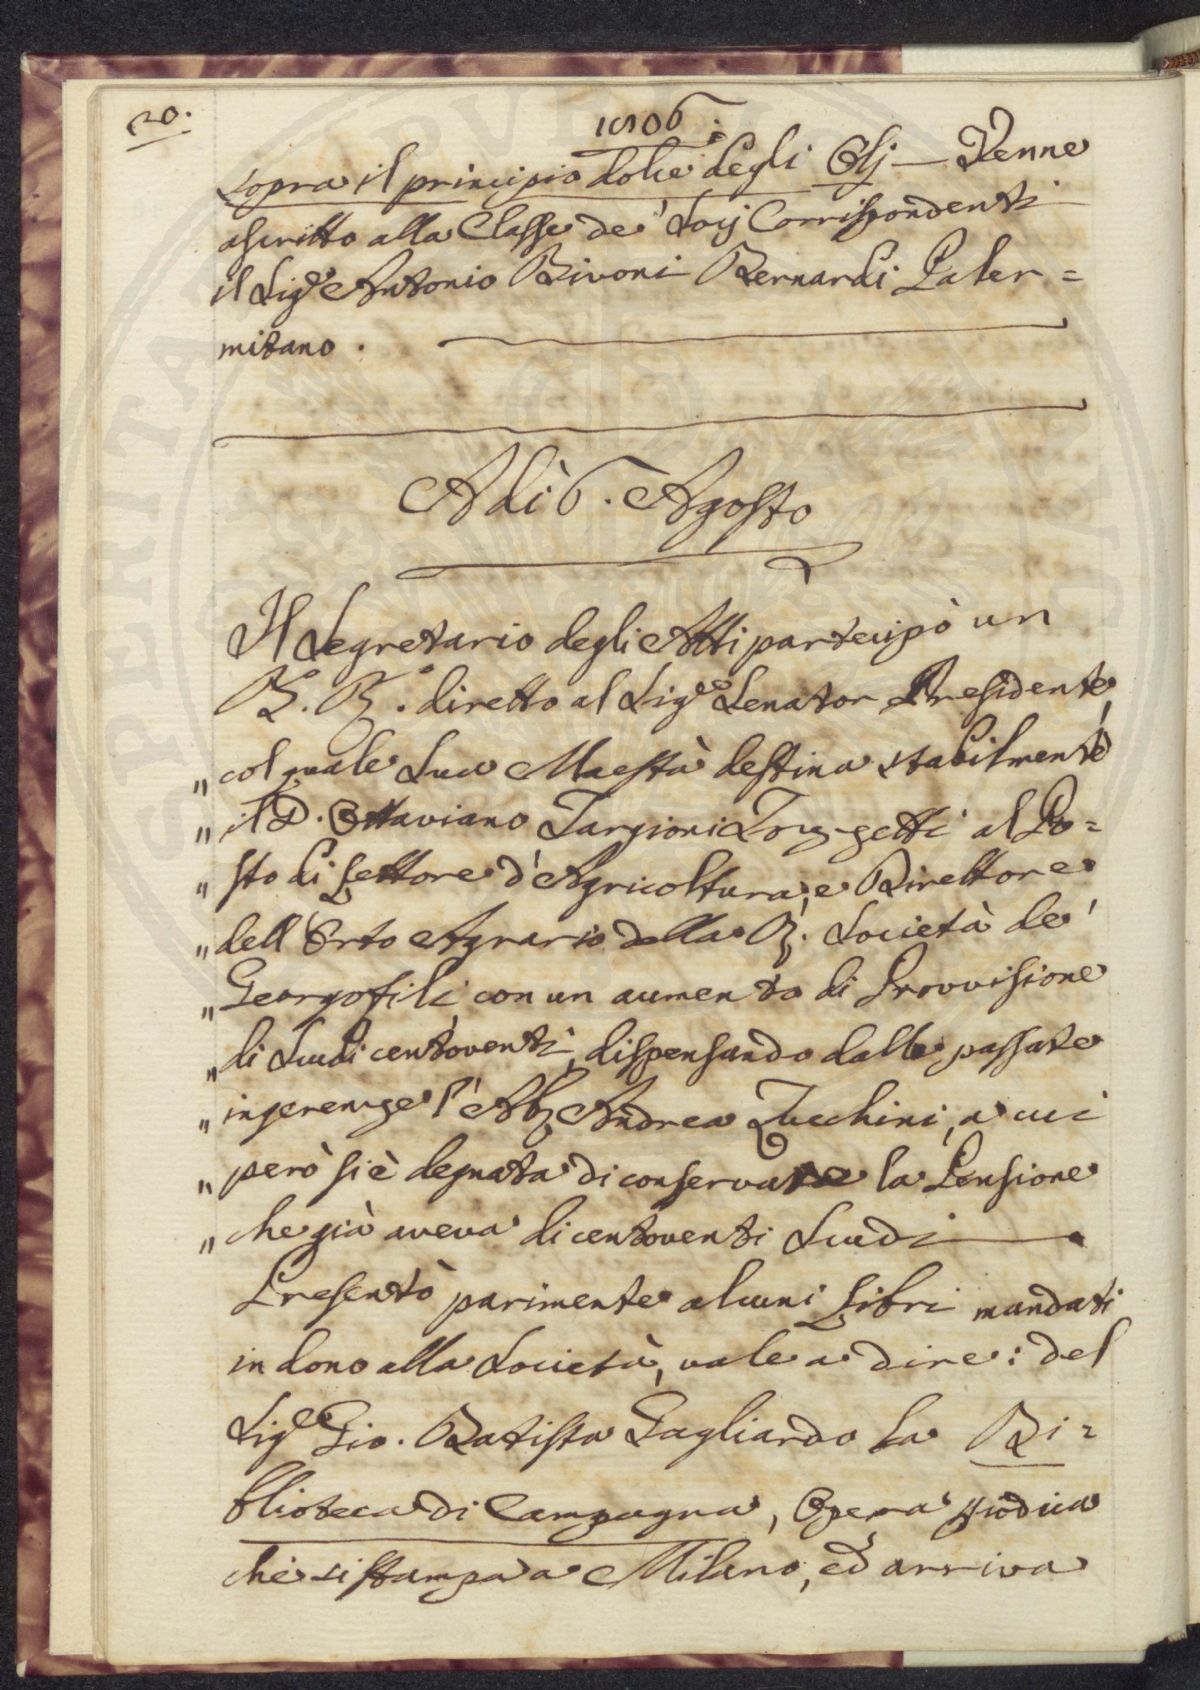 20.
1806.
sopra il principio dolce degli Olj — Venne
ascritto alla Classe de' Socj Corrispondenti
il Sig.e Antonio Bivoni Bernardi Paler=
mitano.
Adì 6. Agosto
Il Segretario degli Atti partecipò un
B.o R.o diretto al Sig.e Senator Presidente,
„ col quale Sua Maestà destina stabilmente
„ il D. Ottaviano Targioni Tozzetti al Po=
„ sto di Lettore d'Agricoltura, e Direttore
„ dell'Orto Agrario della R. Società de'
„ Georgofili, con un aumento di Provvisione
„ di Scudi centoventi, dispensando dalle passate
„ ingerenze l'Ab. Andrea Zucchini, a cui
„ però si è degnata di conservare la Pensione
„ che già aveva di centoventi Scudi —
Presentò parimente alcuni Libri mandati
in dono alla Società, vale a dire: del
Sig.e Gio. Batista Gagliardo La Bi=
blioteca di Campagna, Opera piodica
che si stampa a Milano, ed arriva